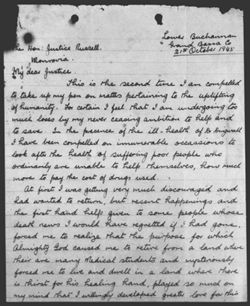 Lower Buchannan
Grand Bassa Co
21st October 1945
The Hon: Justice Russell.
Monrovia.
My dear Justice
This is the second time I am compelled
to take up my pen on matters pertaining to the uplifting
of humanity. For certain I feel that I am undergoing too
much loses by my never ceasing ambition to help and
to save. In the presence of the ill-health of Dr
I have been compelled on innumerable occassions to
look after the health of suffering poor people who
ordinarily are unable to help themselves, how much
more to pay the cost of drugs used.
At first I was getting very much discouraged and
had wanted to return, but recent happenings and
the first hand help given to some people whose
dead news I would have regretted if I had gone,
forced me to realize that the purpose for which
Almighty God caused me to return from a land where
their are many Medical students and mysteriously
forced me to live and dwell in a land where there
is thirst for this healing hand, played so much on
my mind that I willingly developed greater love for this